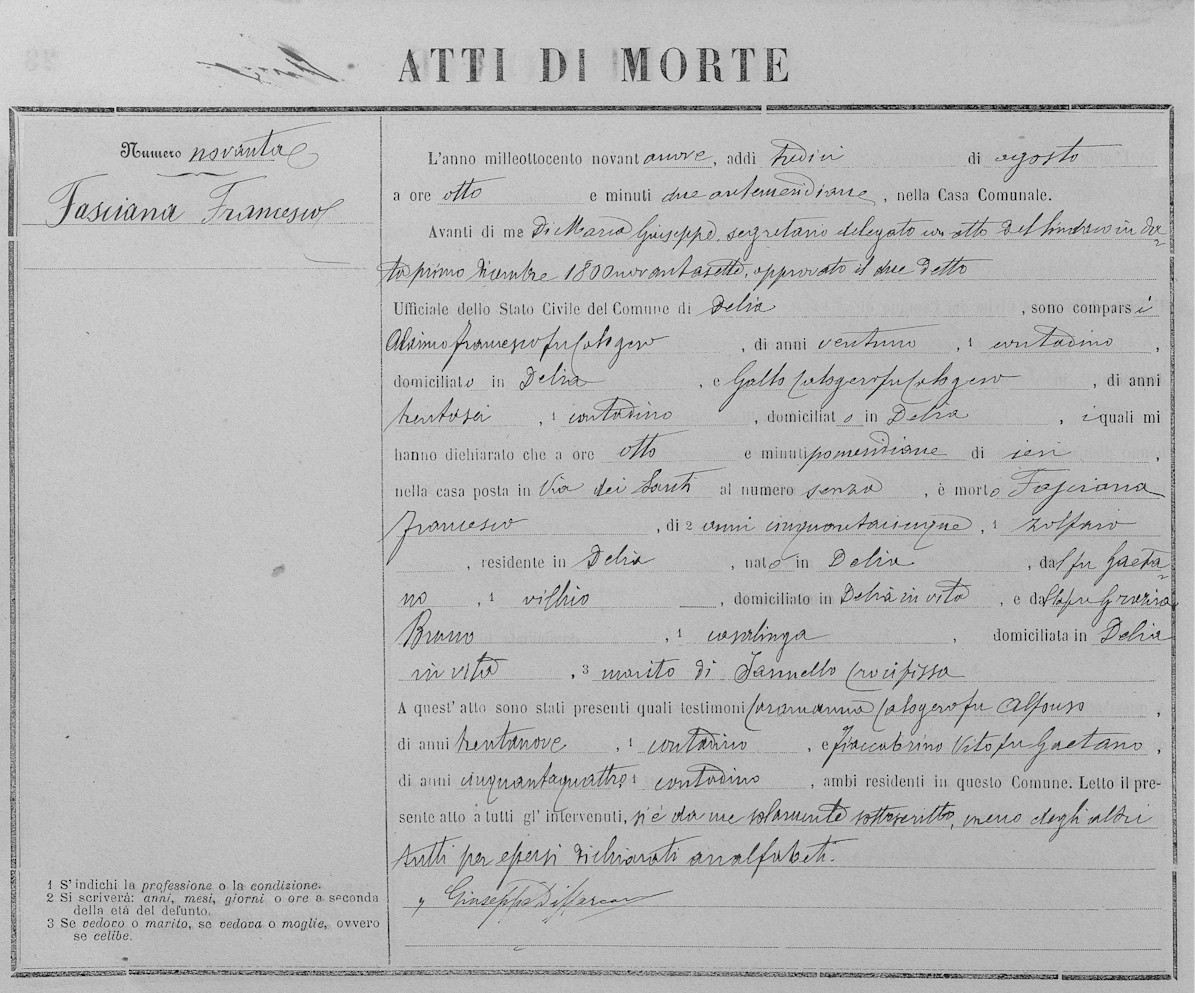 ATTI DI MORTE
Numero novanta
Fasciana Francesco
L'anno milleottocento novantanove, addi tredici di agosto
a ore otto e minuti due antemeridiane, nella Casa Comunale.
Avanti di me Di Maria Giuseppe, segretario delegato con atto del Sindaco in da-
ta primo dicembre 1800novantasette, approvato il due detto
Ufficiale dello Stato Civile del Comune di Delia, sono comparsi
Alaimo Francesco fu Calogero, di anni ventuno, 1 contadino,
domiciliato in Delia, e Gallo Calogero fu Calogero, di anni
trentasei, 1 contadino, domiciliato in Delia, i quali mi
hanno dichiarato che a ore otto e minuti pomeridiane di ieri,
nella casa posta in Via dei Santi al numero senza, è morto Fasciana
Francesco, di 2 anni cinquantacinque, 1 zolfaio
, residente in Delia, nato in Delia, dal fu Gaeta-
no, 1 villico, domiciliato in Delia in vita, e dalla fu Grazia
Bruno, 1 casalinga, domiciliata in Delia
in vita, 3 marito di Iannello Crocifissa
A quest' atto sono stati presenti quali testimoni Caramanna Calogero fu Alfonso,
di anni trentanove, 1 contadino, e Fiaccabrino Vito fu Gaetano,
di anni cinquantaquattro, 1 contadino, ambi residenti in questo Comune. Letto il pre-
sente atto a tutti gl' intervenuti, si è da me solamente sottoscritto, meno degli altri
tutti per essersi dichiarati analfabeti.
Giuseppe Di Maria
1 S'indichi la professione o la condizione.
2 Si scriverà: anni, mesi, giorni o ore a seconda
della età del defunto.
3 Se vedovo o marito, se vedova o moglie, ovvero
se celibe.